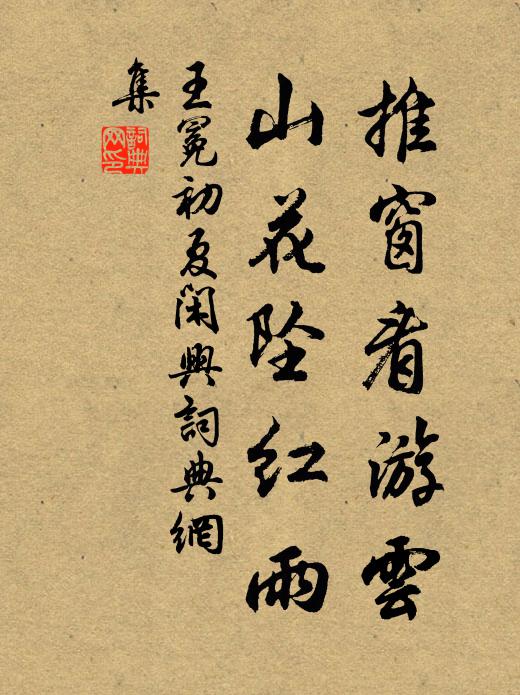 推窗看游雲
山花墜红雨
王冕初夏閑興詞典網
集
詞典
网印